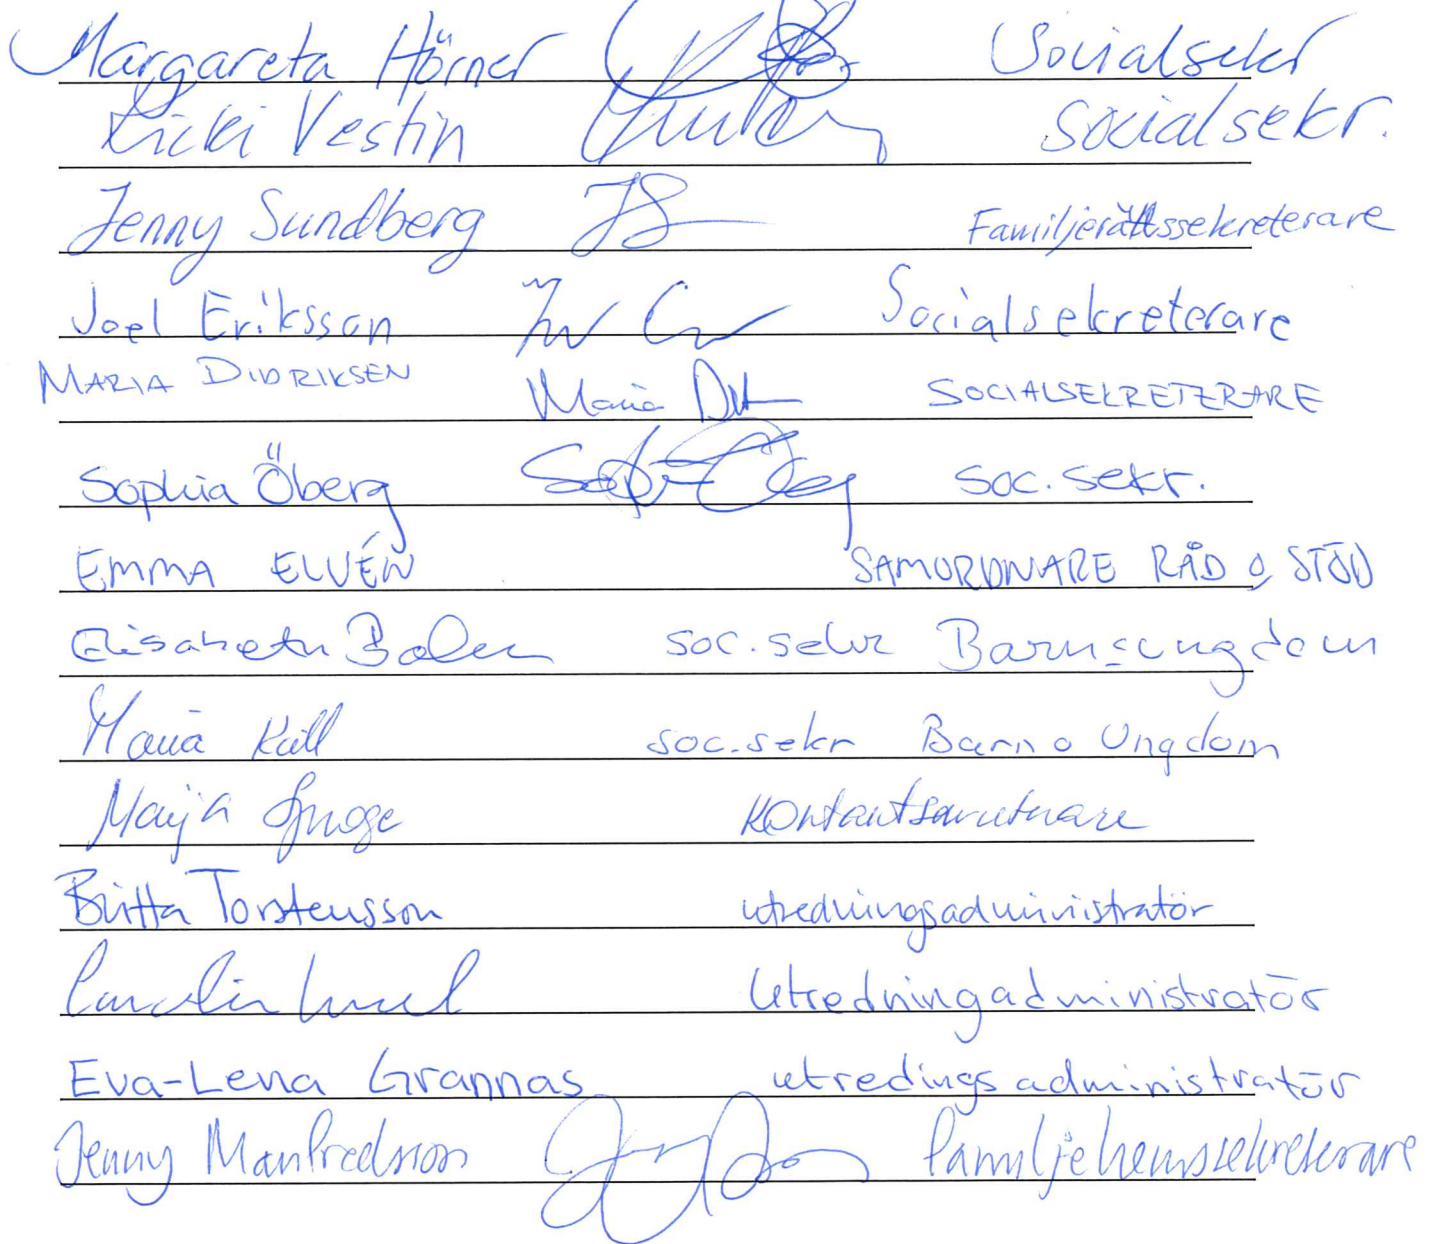 Margareta Hörner Socialsekr
Kicki Vestin Socialsekr.
Jenny Sundberg JS Familjerättssekreterare
Joel Eriksson Socialsekreterare
MARIA DIDRIKSEN Maria SOCIALSEKRETERARE
Sophia Öberg soc.sekr.
EMMA ELVÉN SAMORDNARE RÅD o STÖD
Elisabeth soc.sekr Barn o ungdom
Maria Käll soc.sekr Barn o Ungdom
Maija
Britta Torstensson utredningsadministratör
Utredningadministratör
Eva-Lena Grannas utredingsadministratör
Jenny Manfredsson Familjehemssekreterare